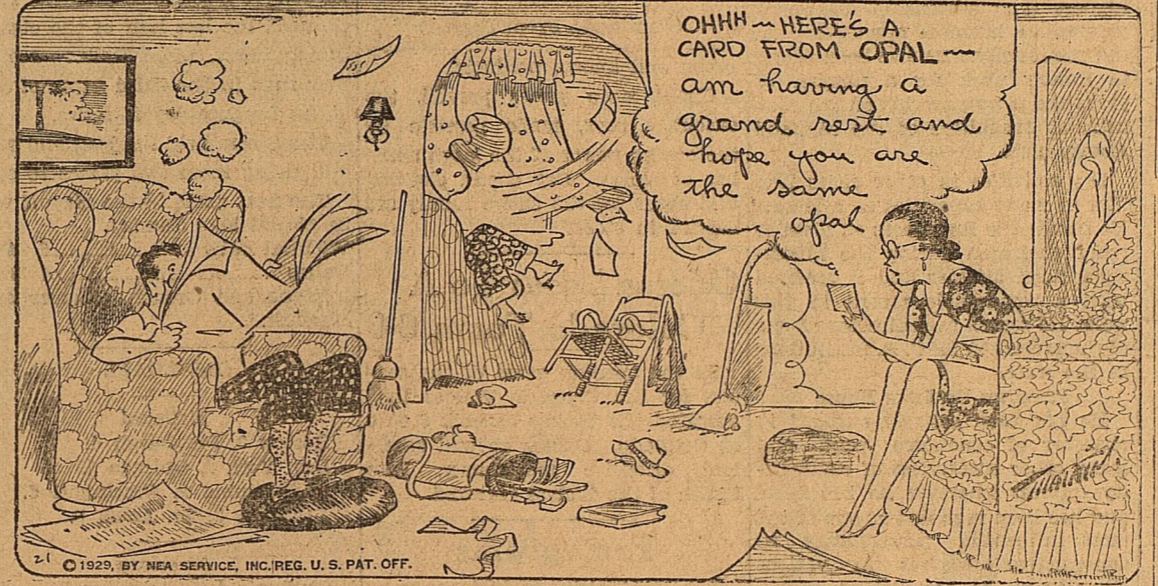 OHHH - HERE'S A
CARD FROM OPAL -
am having a
grand rest and
hope you are
the same
opal
21 ©1929, BY NEA SERVICE, INC. REG. U. S. PAT. OFF.